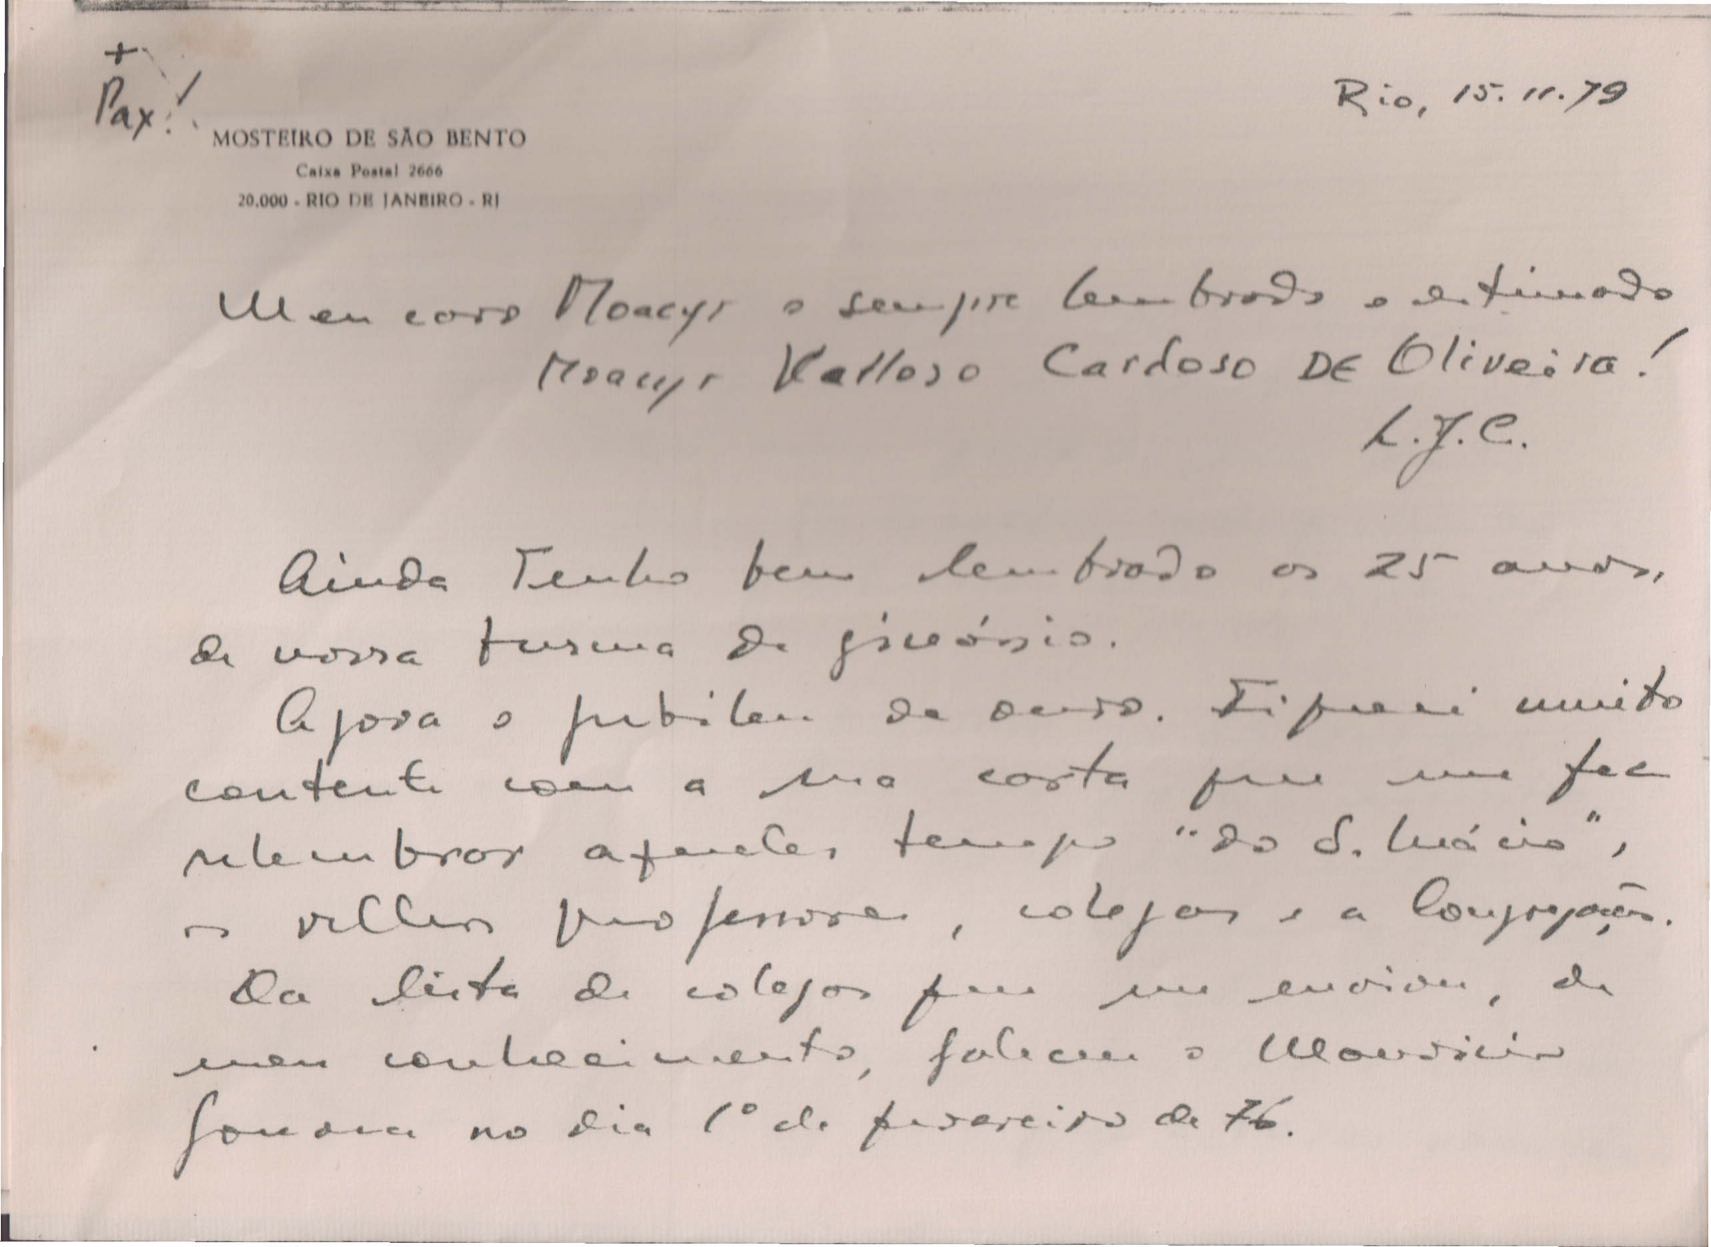 +
Pax!
Rio, 15.11.79
MOSTEIRO DE SÃO BENTO
Caixa Postal 2666
20.000 - RIO DE JANEIRO - RJ
Meu caro Moacyr e sempre lembrado e estimado
Moacyr Velloso Cardoso DE Oliveira!
L.J.C.
Ainda tenho bem lembrado os 25 anos,
de nossa turma de ginásio.
Agora o jubileu de ouro. Fiquei muito
contente com a sua carta que me fez
relembrar aqueles tempo "do S. Inácio",
os velhos professores, colegas e a Congregação.
Da lista de colegas que me enviou, de
meu conhecimento, faleceu o Mauricio
no dia 1º de fevereiro de 76.